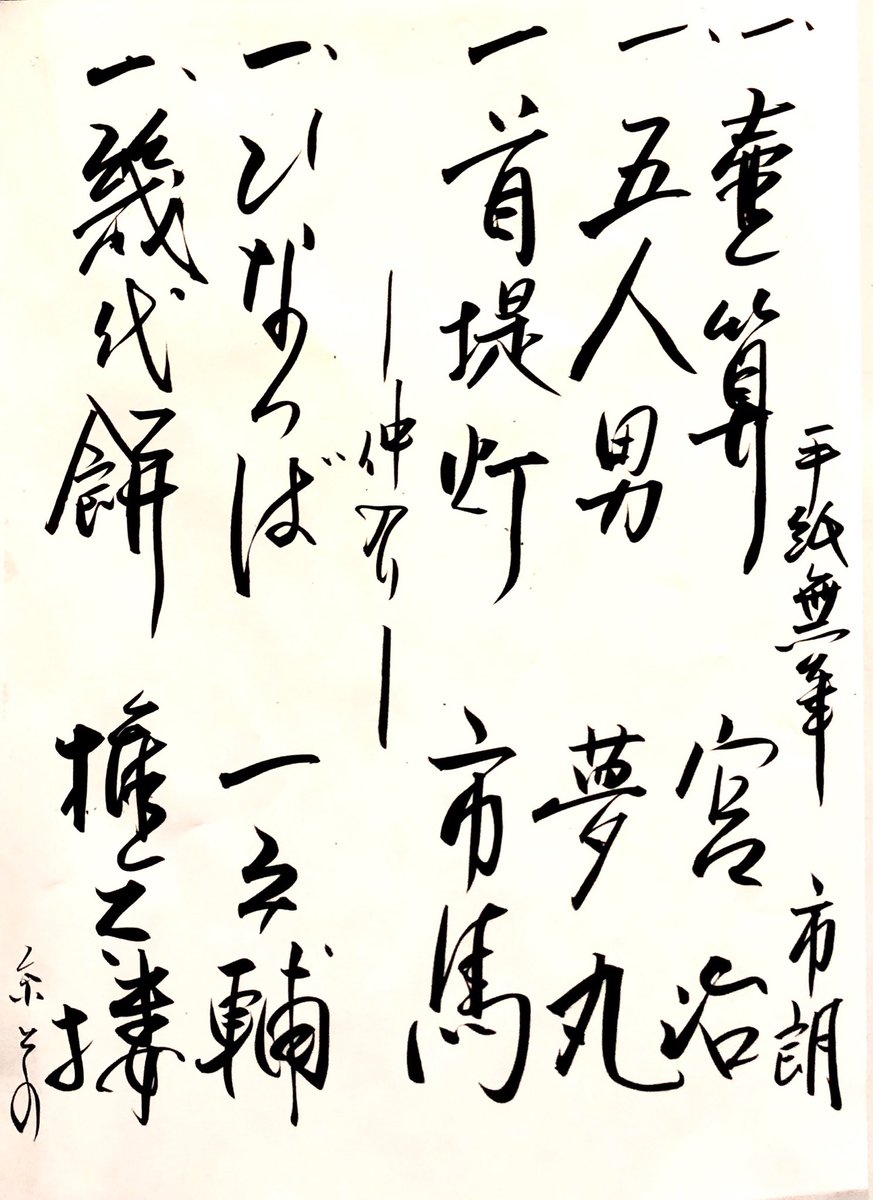 手紙無筆 市朗
一、壺算 宮治
一、五人男 夢丸
一 首提灯 市馬
―仲入り―
一、ひなつば 一之輔
一、幾代餅 権太楼